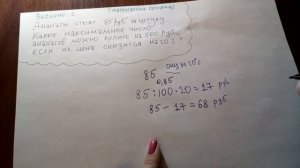 Задание 1. (математика профиль)
Ананасы стоят 85 руб за штуку
Какое максимальное число
ананасов можно купить на 500 руб,
если их цена снизится на 20%?
85
0,85
85 : 100 · 20 = 17 руб
85 - 17 = 68 руб